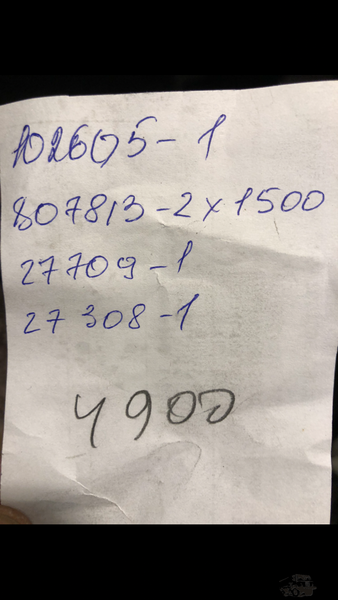 102605-1
807813-2x1500
27709-1
27308-1
4900